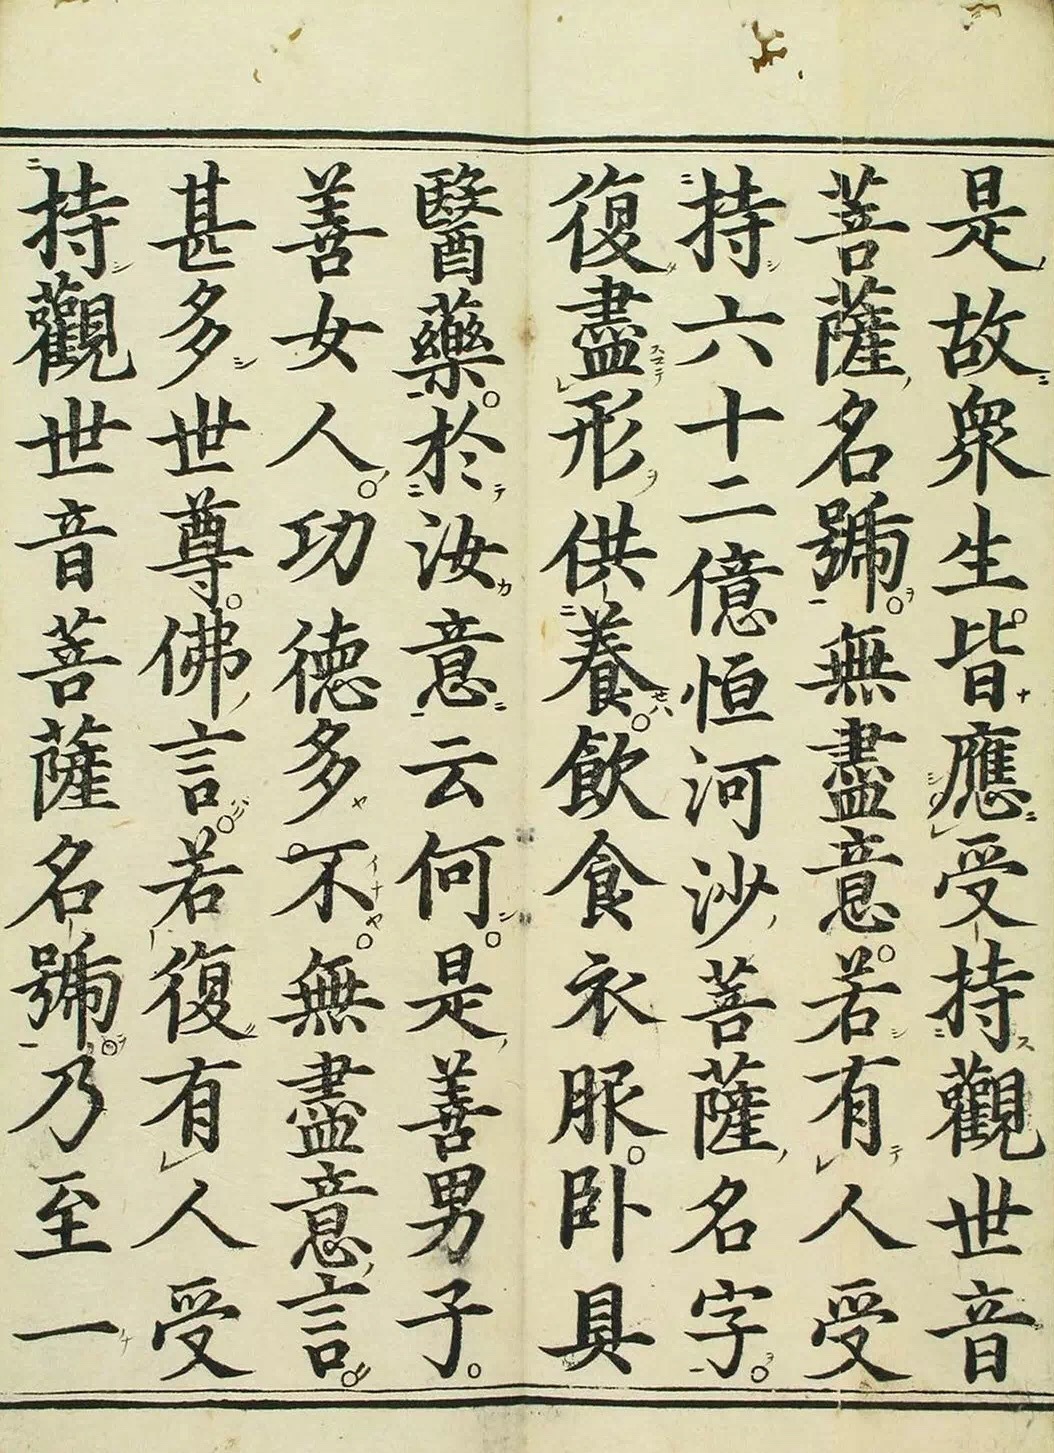 是故衆生皆應受持觀世音
菩薩名號無盡意若有人受
持六十二億恒河沙菩薩名字
復盡形供養飲食衣服卧具
醫藥於汝意云何是善男子
善女人功德多不無盡意言
甚多世尊佛言若復有人受
持觀世音菩薩名號乃至一